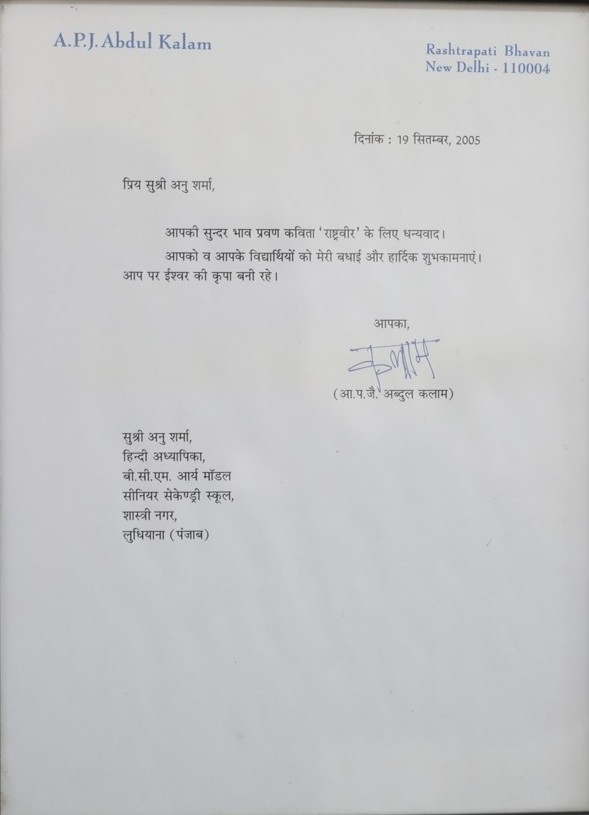 A.P.J. Abdul Kalam
Rashtrapati Bhavan
New Delhi - 110004
दिनांक : 19 सितम्बर, 2005
प्रिय सुश्री अनु शर्मा,
आपकी सुन्दर भाव प्रवण कविता ‘राष्ट्रवीर’ के लिए धन्यवाद।
आपको व आपके विद्यार्थियों को मेरी बधाई और हार्दिक शुभकामनाएं।
आप पर ईश्वर की कृपा बनी रहे।
आपका,
कलाम
(आ.प.जै. अब्दुल कलाम)
सुश्री अनु शर्मा,
हिन्दी अध्यापिका,
बी.सी.एम. आर्य मॉडल
सीनियर सेकेण्ड्री स्कूल,
शास्त्री नगर,
लुधियाना (पंजाब)